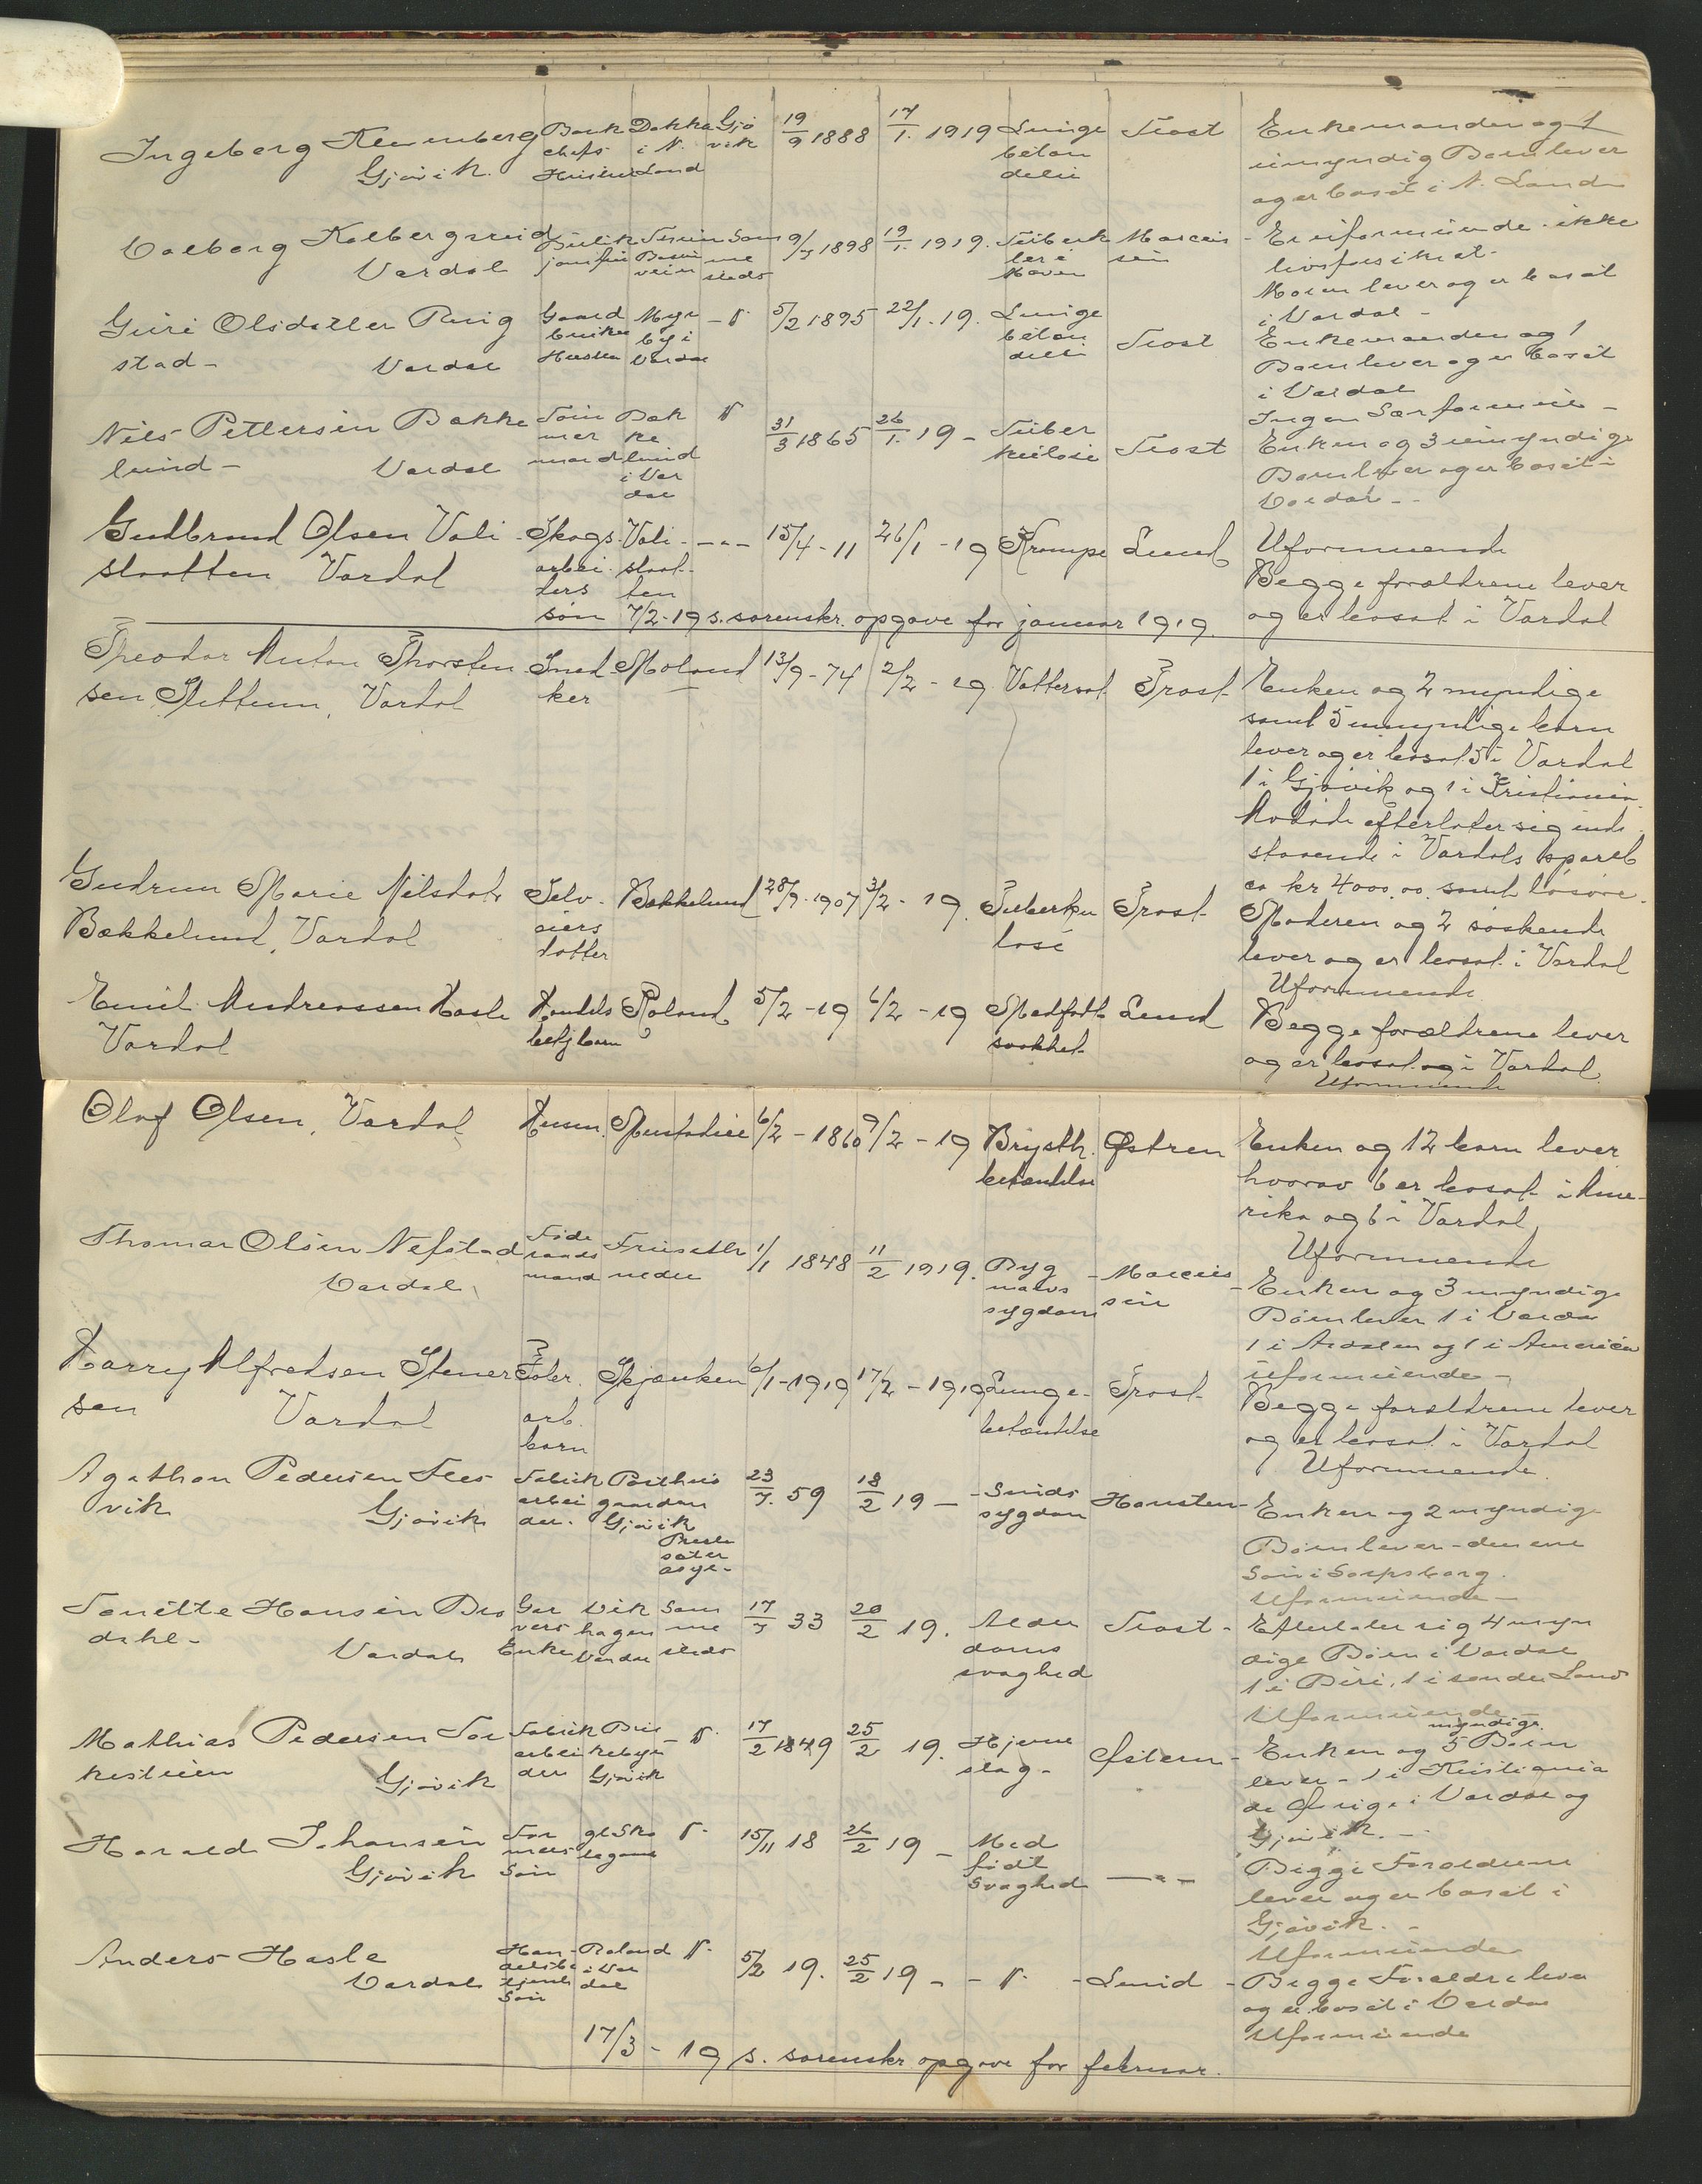 Ingeborg Gjøvik. Bank chefs Hustru Dokka i N. Land Gjø vik 19/9 1888 17/1. 1919 Lunge betæn delse Trost Enkemanden og 1
umyndig Barn lever
og er bosat i N. Land
Valborg Vardal Butik jomfru Samme steds 9/7 1898 19/1. 1919. Tuberkler i Maven Marcussen Er uformuende. ikke
livsforsikret.
Moren lever og er bosat
i Vardal -
Guri Olsdatter Ruigstad - Vardal Gaardbruker Hustru Myrby i Vardal 5/2 1895 22/1. 19. Lungebetændelse Trost Enkemanden og 1
Barn lever og er bosat
i Vardal
Ingen Særformue -
Nils Pettersen Bakkelund - Vardal Tømmermand Bakkelund i Vardal 31/3 1865 26/1. 19 - Tuberkulose Trost Enken og 3 umyndige
Barn lever og er bosat i
Vardal - -
Gudbrand Olsen Voli-
slaatten Vardal Skogsarbeidersøn Volislaatten -"- 15/4 - 11 26/1 - 19 Krampe Lund Uformuende
Begge forældrene lever
og er bosat i Vardal
7/2-19 s. sorenskr. opgave for januar 1919.
Theodor Anton Thorsten
sen Slettum, Vardal Snedker Moland 13/9 - 74 2/2 - 19. Vattersot Trost Enken og 2 myndige
samt 5 umyndige barn
lever og er bosat 5 i Vardal
1 i Gjøvik og 1 i Kristiania.
Avdøde efterlater sig inde
staaende i Vardals spareb
ca kr 4000,00 samt løsøre.
Gudrun Marie Nilsdatr
Bækkelund, Vardal Selveiers datter Bækkelund 28/9-1907 3/2 - 19. Tuberkulose Trost Moderen og 2 søskende
lever og er bosat i Vardal
Uformuende
Emil Andreassen Hasle
Vardal Handelsbetj barn Roland 5/2 - 19 6/2 - 19 Medfødt svakhet Lund Begge forældrene lever
og er bosat og i Vardal
Uformuende
Olaf Olsen, Vardal Husm. 6/2 - 1860 9/2 - 19 Brysth. betændelse Østren Enken og 12 barn lever
hvorav 6 er bosat i Ame-
rika og 6 i Vardal
Uformuende
Thomas Olsen Nefstad
Vardal Føderaadsmand nedre 1/1 1848 11/2 1919. Rygmarvs sygdom Marcussen Enken og 3 myndige
Børn lever 1 i Vardal
1 i og 1 i America
uformuende -
Harry Alfredsen Stener
sen Vardal Fabr. arb. barn Skjønken 6/1-1919 17/2 - 1919 Lungebetændelse Trost Begge forældrene lever
og er bosat i Vardal
Uformuende.
Agathon Pedersen
vik Gjøvik Fabrikarbeider. gaarden Gjøvik 23/7. 59 18/2 19 - sygdom Hansten Enken og 2 myndige
Børn lever - den ene
Søn i Sarpsborg.
Uformuende -
Hansen Bro
dahl - Vardal Garvers Enke Vikhagen Vardal Samme steds 17/7 33 20/2 19. Alderdoms svaghed Trost - Efterlater sig 4 myn
dige Børn i Vardal
1 i Biri, 1 i søndre Land
Uformuende -
Mathias Pedersen
Gjøvik Fabrikarbeider Gjøvik 17/2 1849 25/2 19. Hjerneslag - Østern - Enken og 5 myndige Børn
lever - 1 i Kristiania
de Øvrige i Vardal og
Gjøvik. -
Harald Johansen
Gjøvik Formers Søn 15/11 18 26/2 19 - Medfødt Svaghed -"- Begge Foreldrene
lever og er bosat i
Gjøvik. -
Uformuende
Anders Hasle
Vardal Handelsbetjents Søn Roland i Vardal 5/2 19. 25/2 19 - Lund - Begge Foreldre lever
og er bosat i Vardal
Uformuende
17/3 - 19 s. sorenskr opgave for februar.